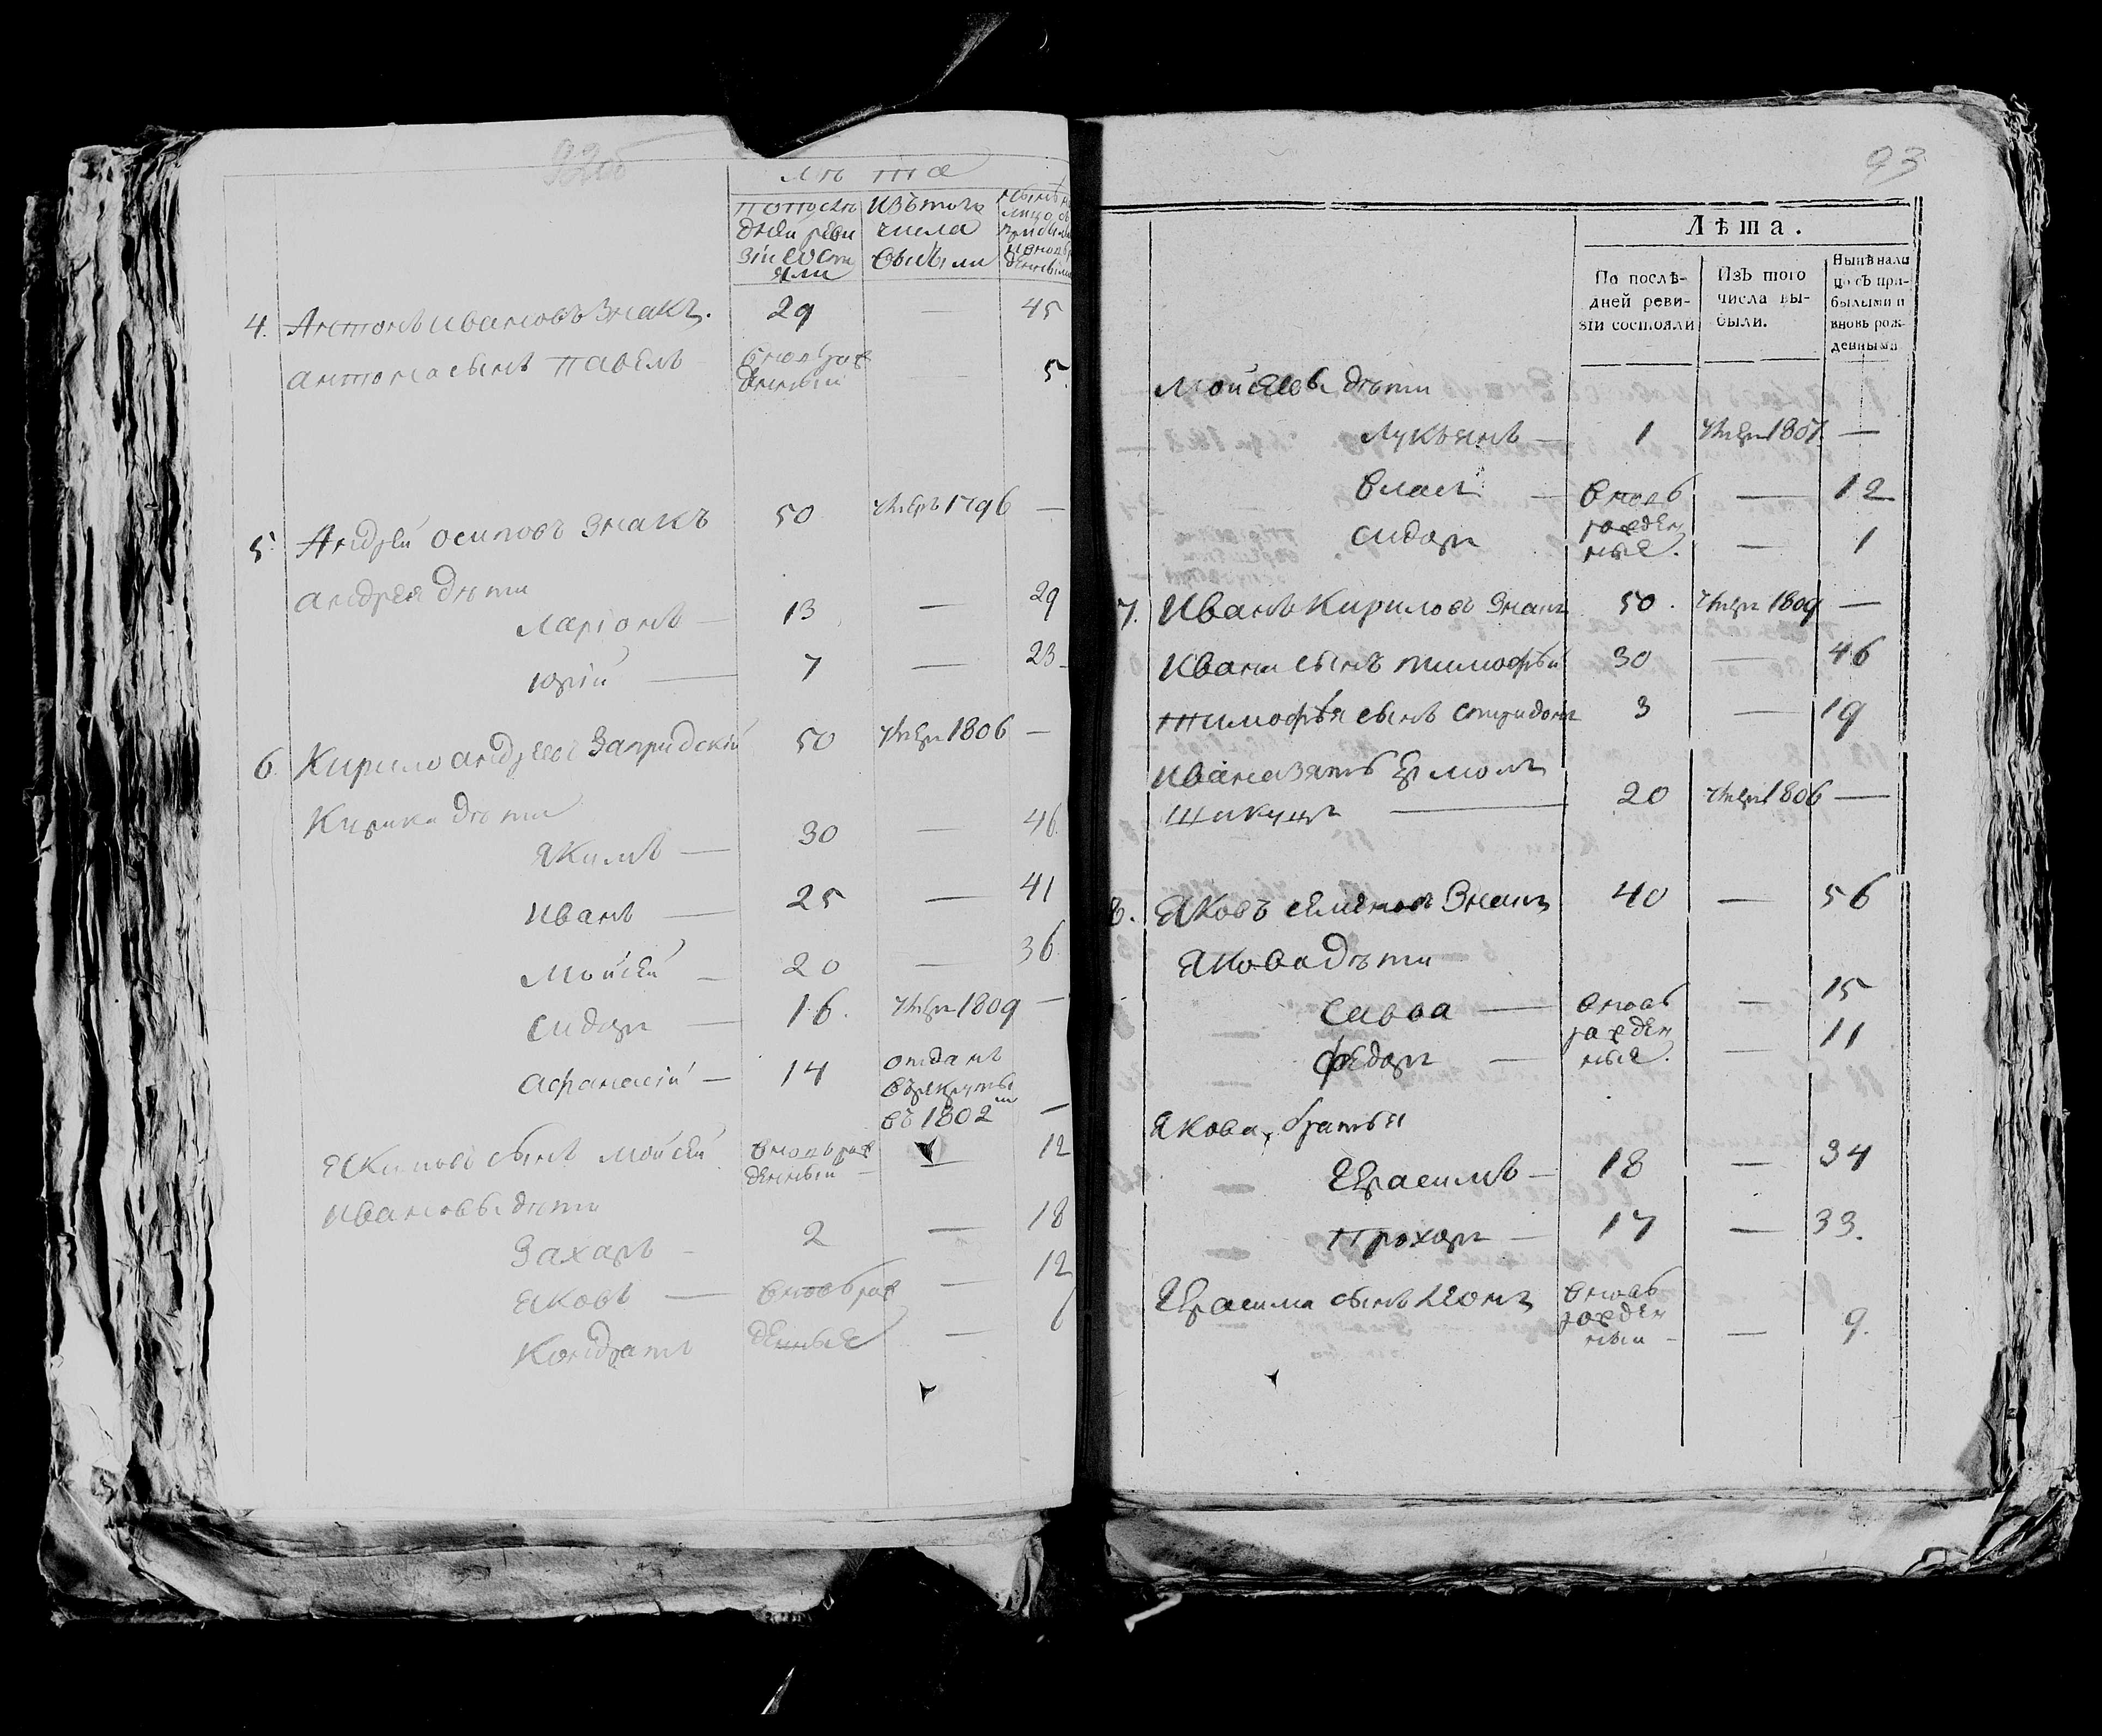 92об
Лѣта
По послѣ
дней реви
зіи состо
яли
Изъ того
числа
выбыли
4. Антонъ Ивановъ Знакъ. 29 — 45
Антона сынъ Павелъ вновь рож
денный — 5
5. Андрей Осиповъ Знакъ 50 умеръ 1796 —
Андрея дѣти
Ларіонъ — 13 — 29
Юрій — 7 — 23
6 Кирило Андреевъ 50 умеръ 1806 —
дѣти
Якимъ — 30 — 46
Иванъ — 25 — 41
Мойсей — 20 — 36
Сидоръ — 16. умеръ 1809 —
Афанасій — 14 отданъ
въ рекруты
въ 1802 м —
Якимовъ сынъ Мойсей вновь рож
денный — 12
Ивановы дѣти
Захаръ — 2 — 18
Яковъ — вновь рож — 12
Кондратъ денные —
93
Лѣта.
По послѣ-
дней реви-
зіи состояли
Изъ того
числа вы-
были.
Нынѣ нали
цо съ при-
былыми и
вновь рож-
денными
Мойсеевы дѣти
Лукьянъ — 1 умеръ 1801 —
Власъ — вновь — 12
Сидоръ рожден
ные. — 1
7. Иванъ Кириловъ Знакъ 50. умеръ 1809 —
Ивана сынъ Тимофѣй 30 — 46
Тимофѣя сынъ Спиридонъ 3 — 19
Ивана зять Ермолъ
20 умеръ 1806 —
8. Яковъ Семеновъ Знакъ 40 — 56
Якова дѣти
Савва — вновь — 15
Федоръ — рожден
ные. — 11
Якова, братья
Герасимъ — 18 — 34
Прохоръ — 17 — 33.
Герасима сынъ Леонъ вновь
рожден
ный — — 9.